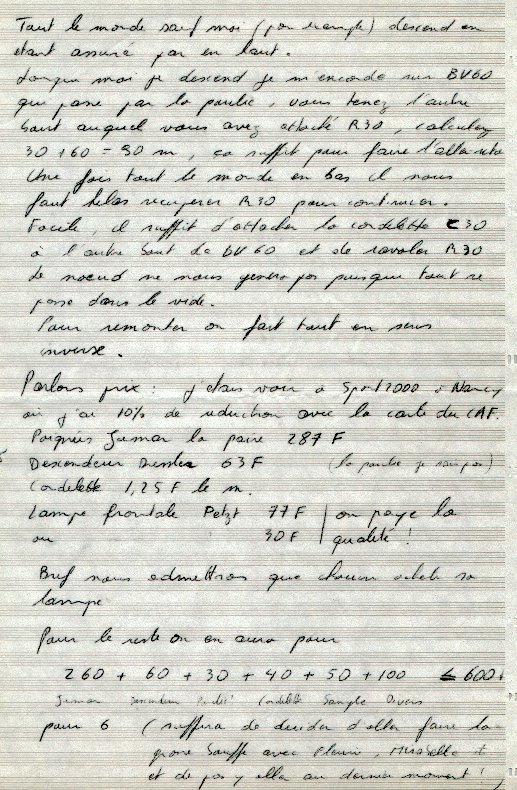 Tout le monde sauf moi (par exemple) descend en
étant assuré par en haut.
Lorsque moi je descend je m'encorde sur BV60
qui passe par la poulie, vous tenez l'autre
bout auquel vous avez attaché R30, calculez
30 + 60 = 90 m, ça suffit pour faire l'aller retour
Une fois tout le monde en bas il nous
faut hélas récupérer R30 pour continuer.
Facile, il suffit d'attacher la cordelette C30
à l'autre bout de BV60 et de ravaler R30
le noeud ne nous gênera pas puisque tout se
passe dans le vide.
Pour remonter on fait tout en sens
inverse.
Parlons prix : j'étais voir à Sport 2000 à Nancy
où j'ai 10% de réduction avec la carte du CAF.
Poignées Jumar la paire 287 F
Descendeur Dressler 63 F (la poulie je sais pas)
Cordelette 1,25 F le m.
Lampe frontale Petzl 77 F | on paye la
ou 30 F | qualité !
Bref nous admettrons que chacun achète sa
lampe
Pour le reste on en aura pour
260 + 60 + 30 + 40 + 50 + 100 ≤ 600
Jumar descendeur Poulie Cordelette Sangle Divers
pour 6 (suffira de décider d'aller faire la
grosse bouffe avec Pierre, Mirabelle +
et de pas y aller au dernier moment !)